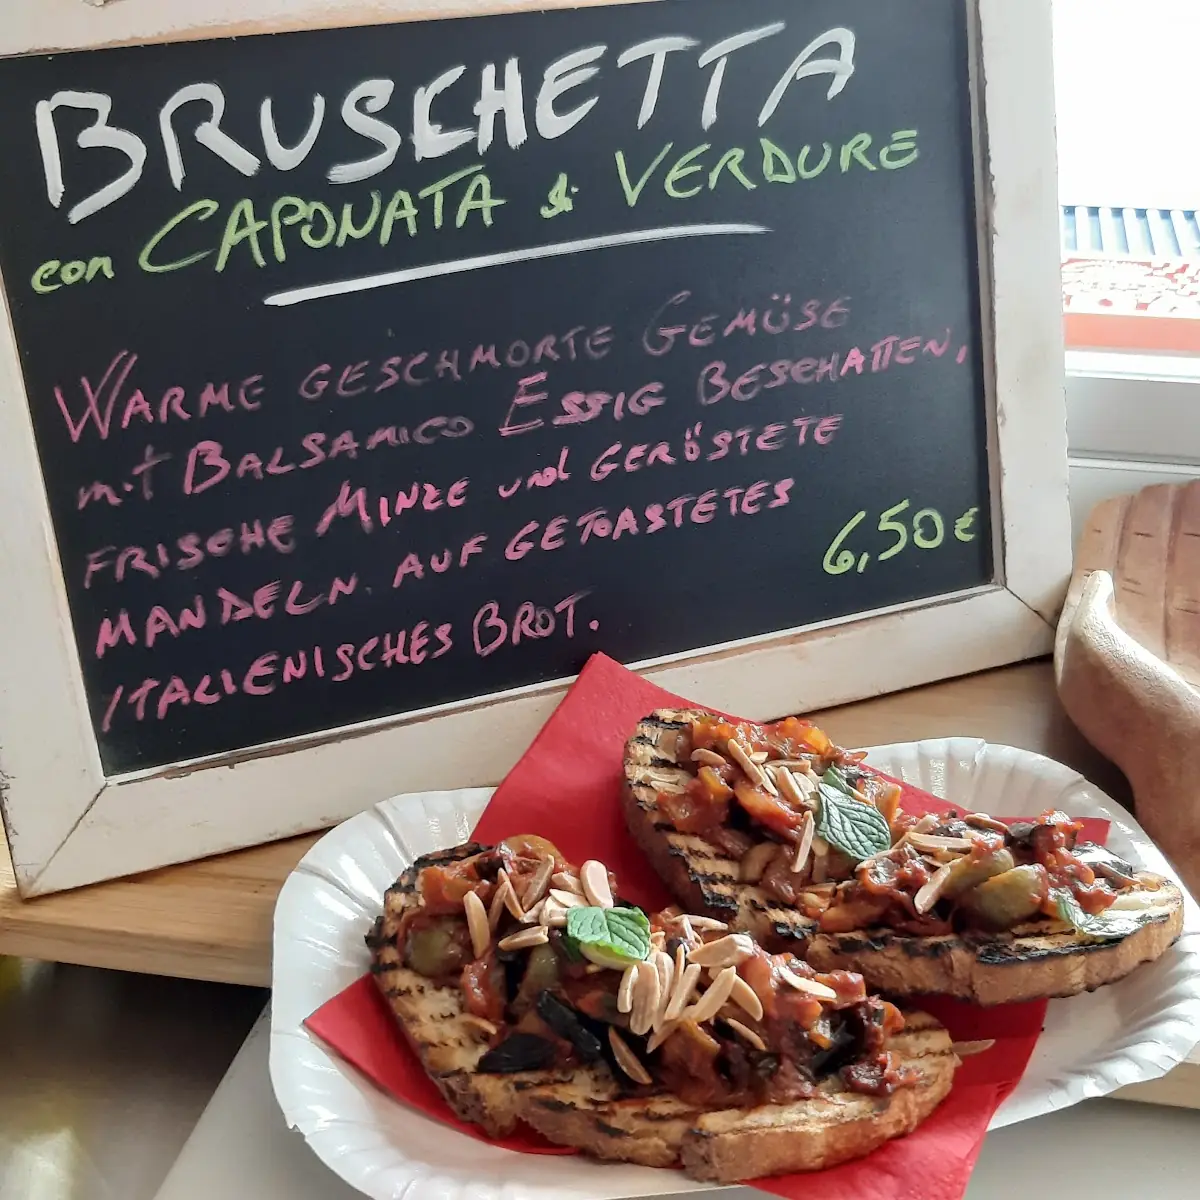 BRUSCHETTA
con CAPONATA di VERDURE
WARME GESCHMORTE GEMÜSE
mit BALSAMICO ESSIG BESCHATTEN,
FRISCHE MINZE und GERÖSTETE
MANDELN. AUF GETOASTETES
ITALIENISCHES BROT.
6,50 €